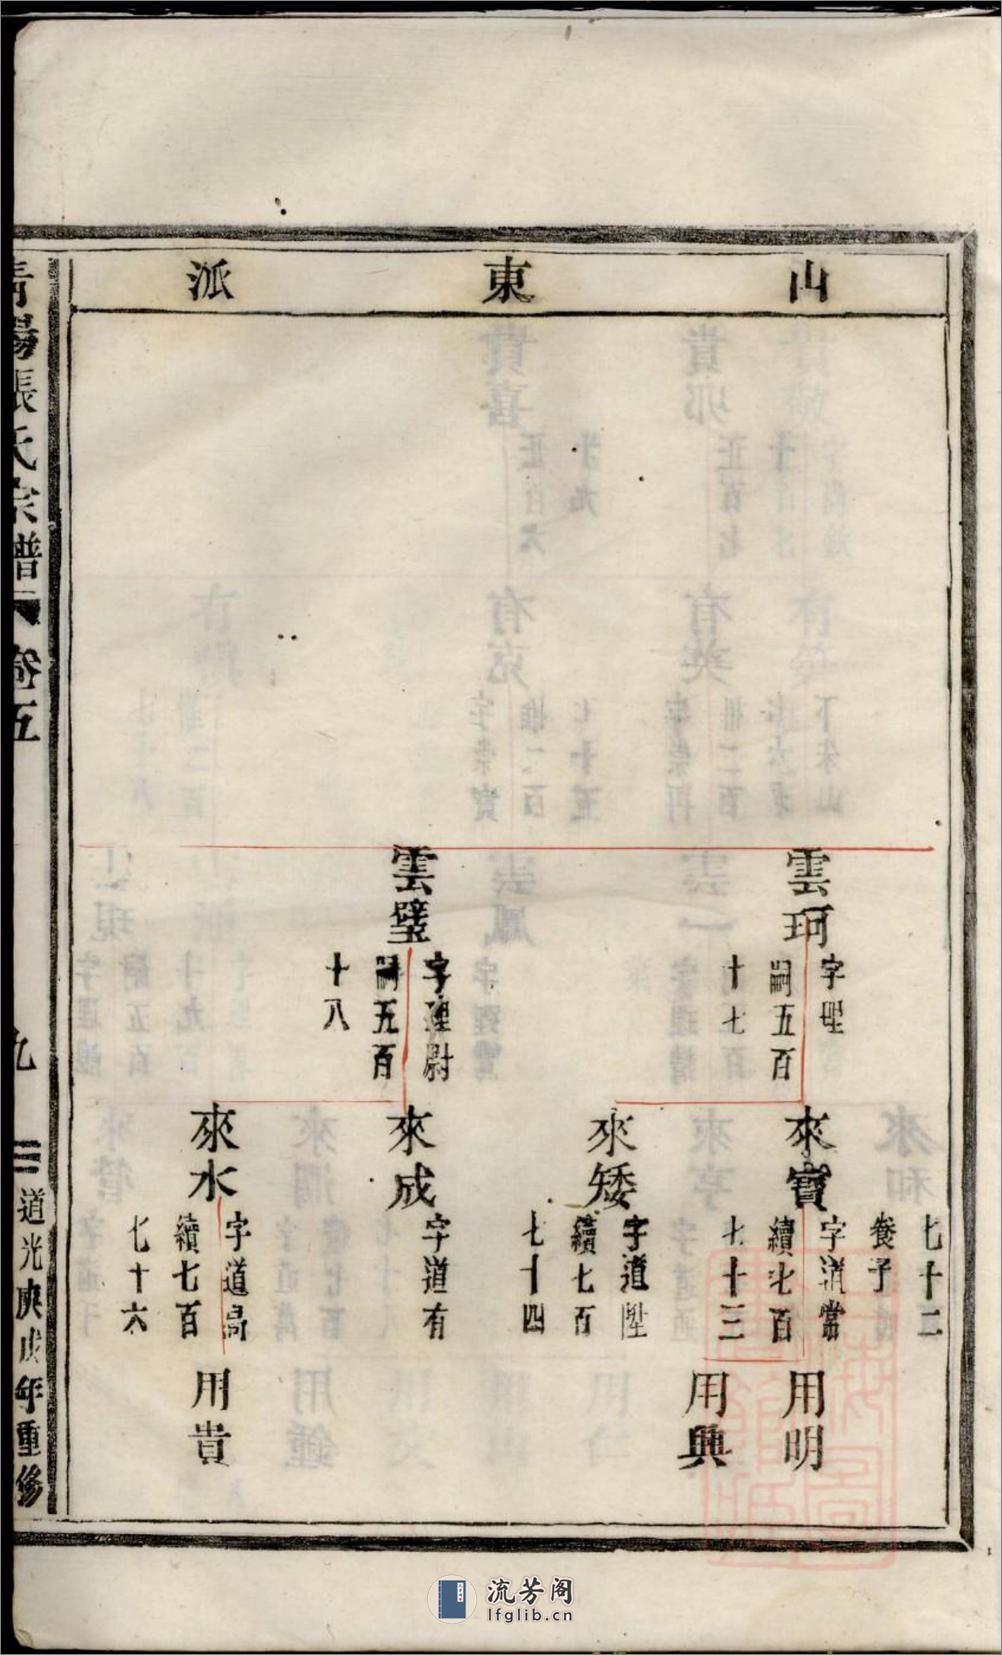 山東派
雲珂
字理
嗣五百
十七
雲璧
字理尉
嗣五百
十八
七十二
養子
來寶
字道常
續七百
七十三
來矮
字道陞
續七百
七十四
來成
字道有
來水
字道局
續七百
七十六
用明
用興
用貴
青陽張氏宗譜
卷五
九
道光庚戌年重修
流芳阁
lfglib.cn